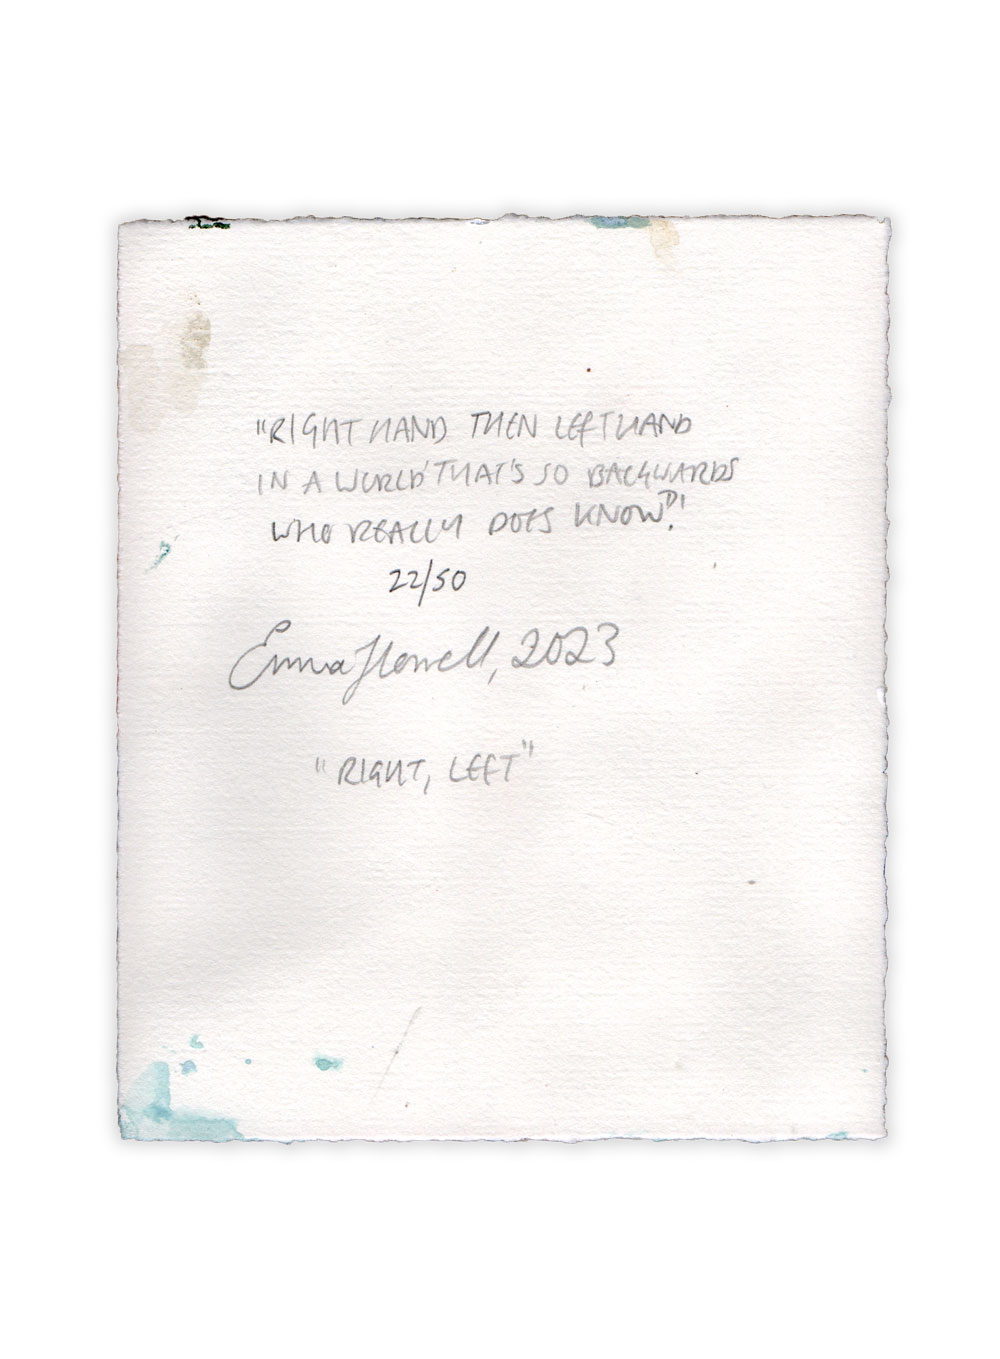 "RIGHT HAND THEN LEFT HAND
IN A WORLD THAT'S SO BACKWARDS
WHO REALLY DOES KNOW?"
22/50
Emma Howell, 2023
"RIGHT, LEFT"